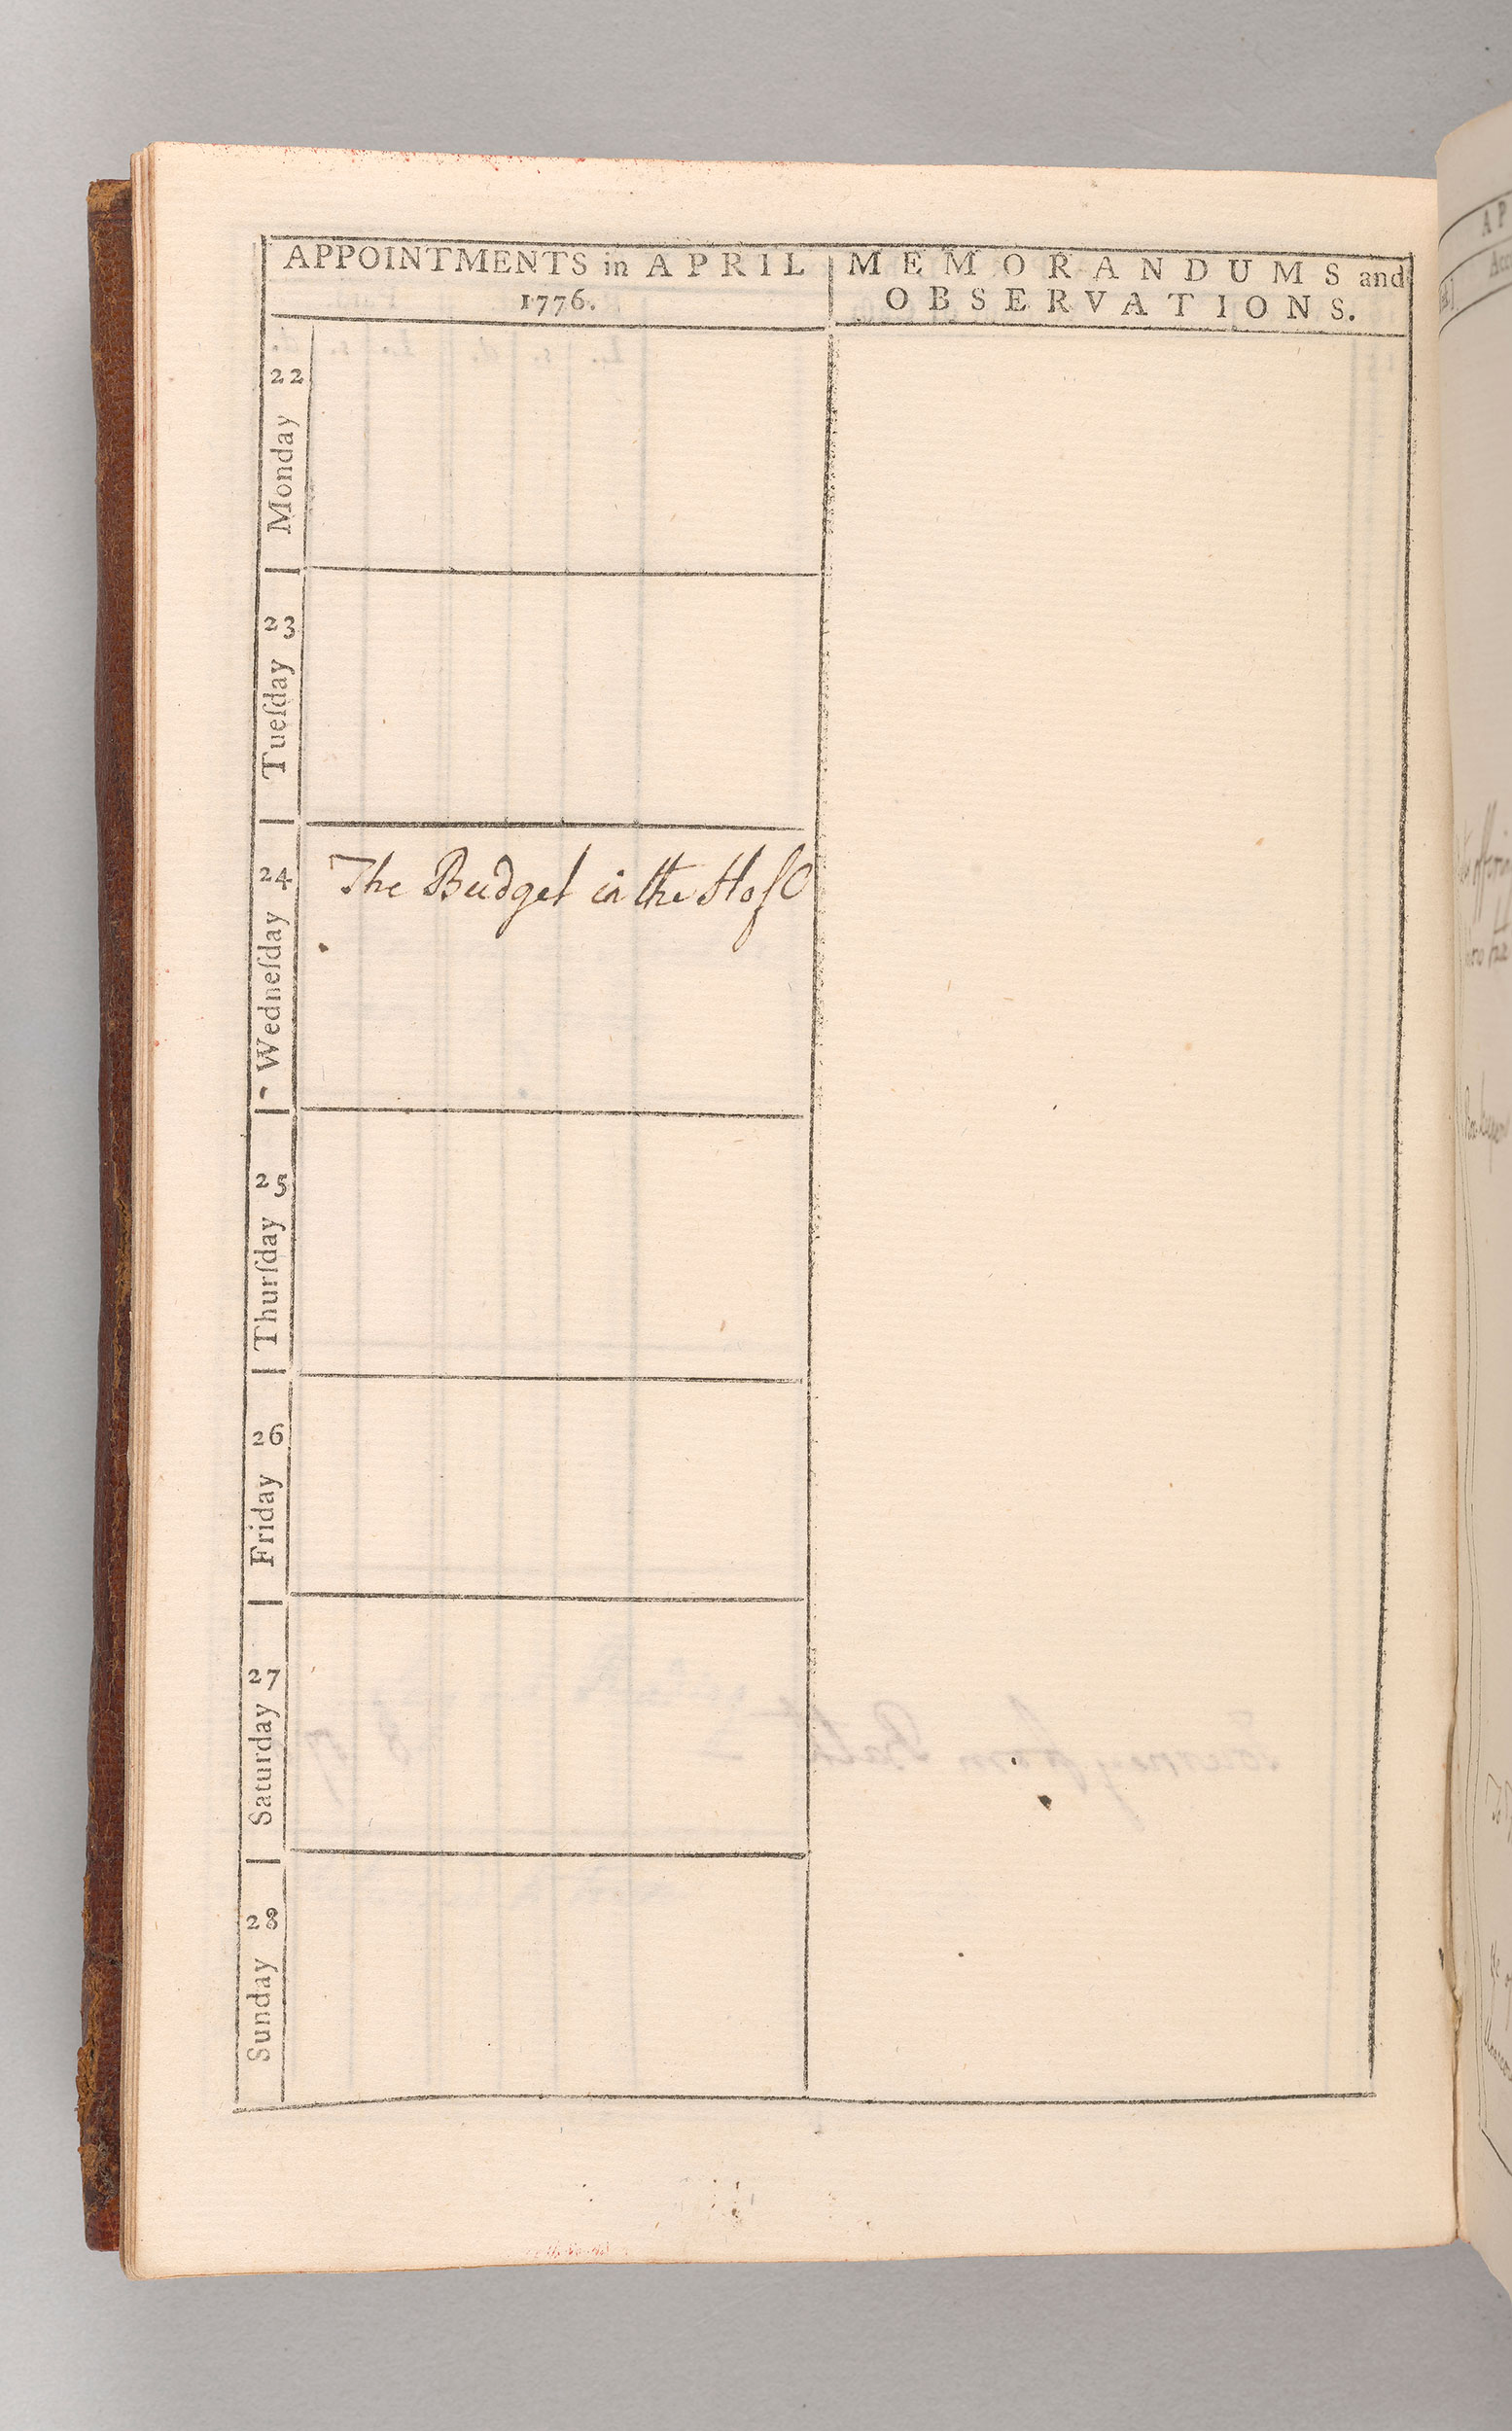 APPOINTMENTS in APRIL
1776.
MEMORANDUMS and
OBSERVATIONS.
Monday 22
Tueſday 23
Wedneſday 24
The Budget in the Hoſe
Thurſday 25
Friday 26
Saturday 27
Sunday 28